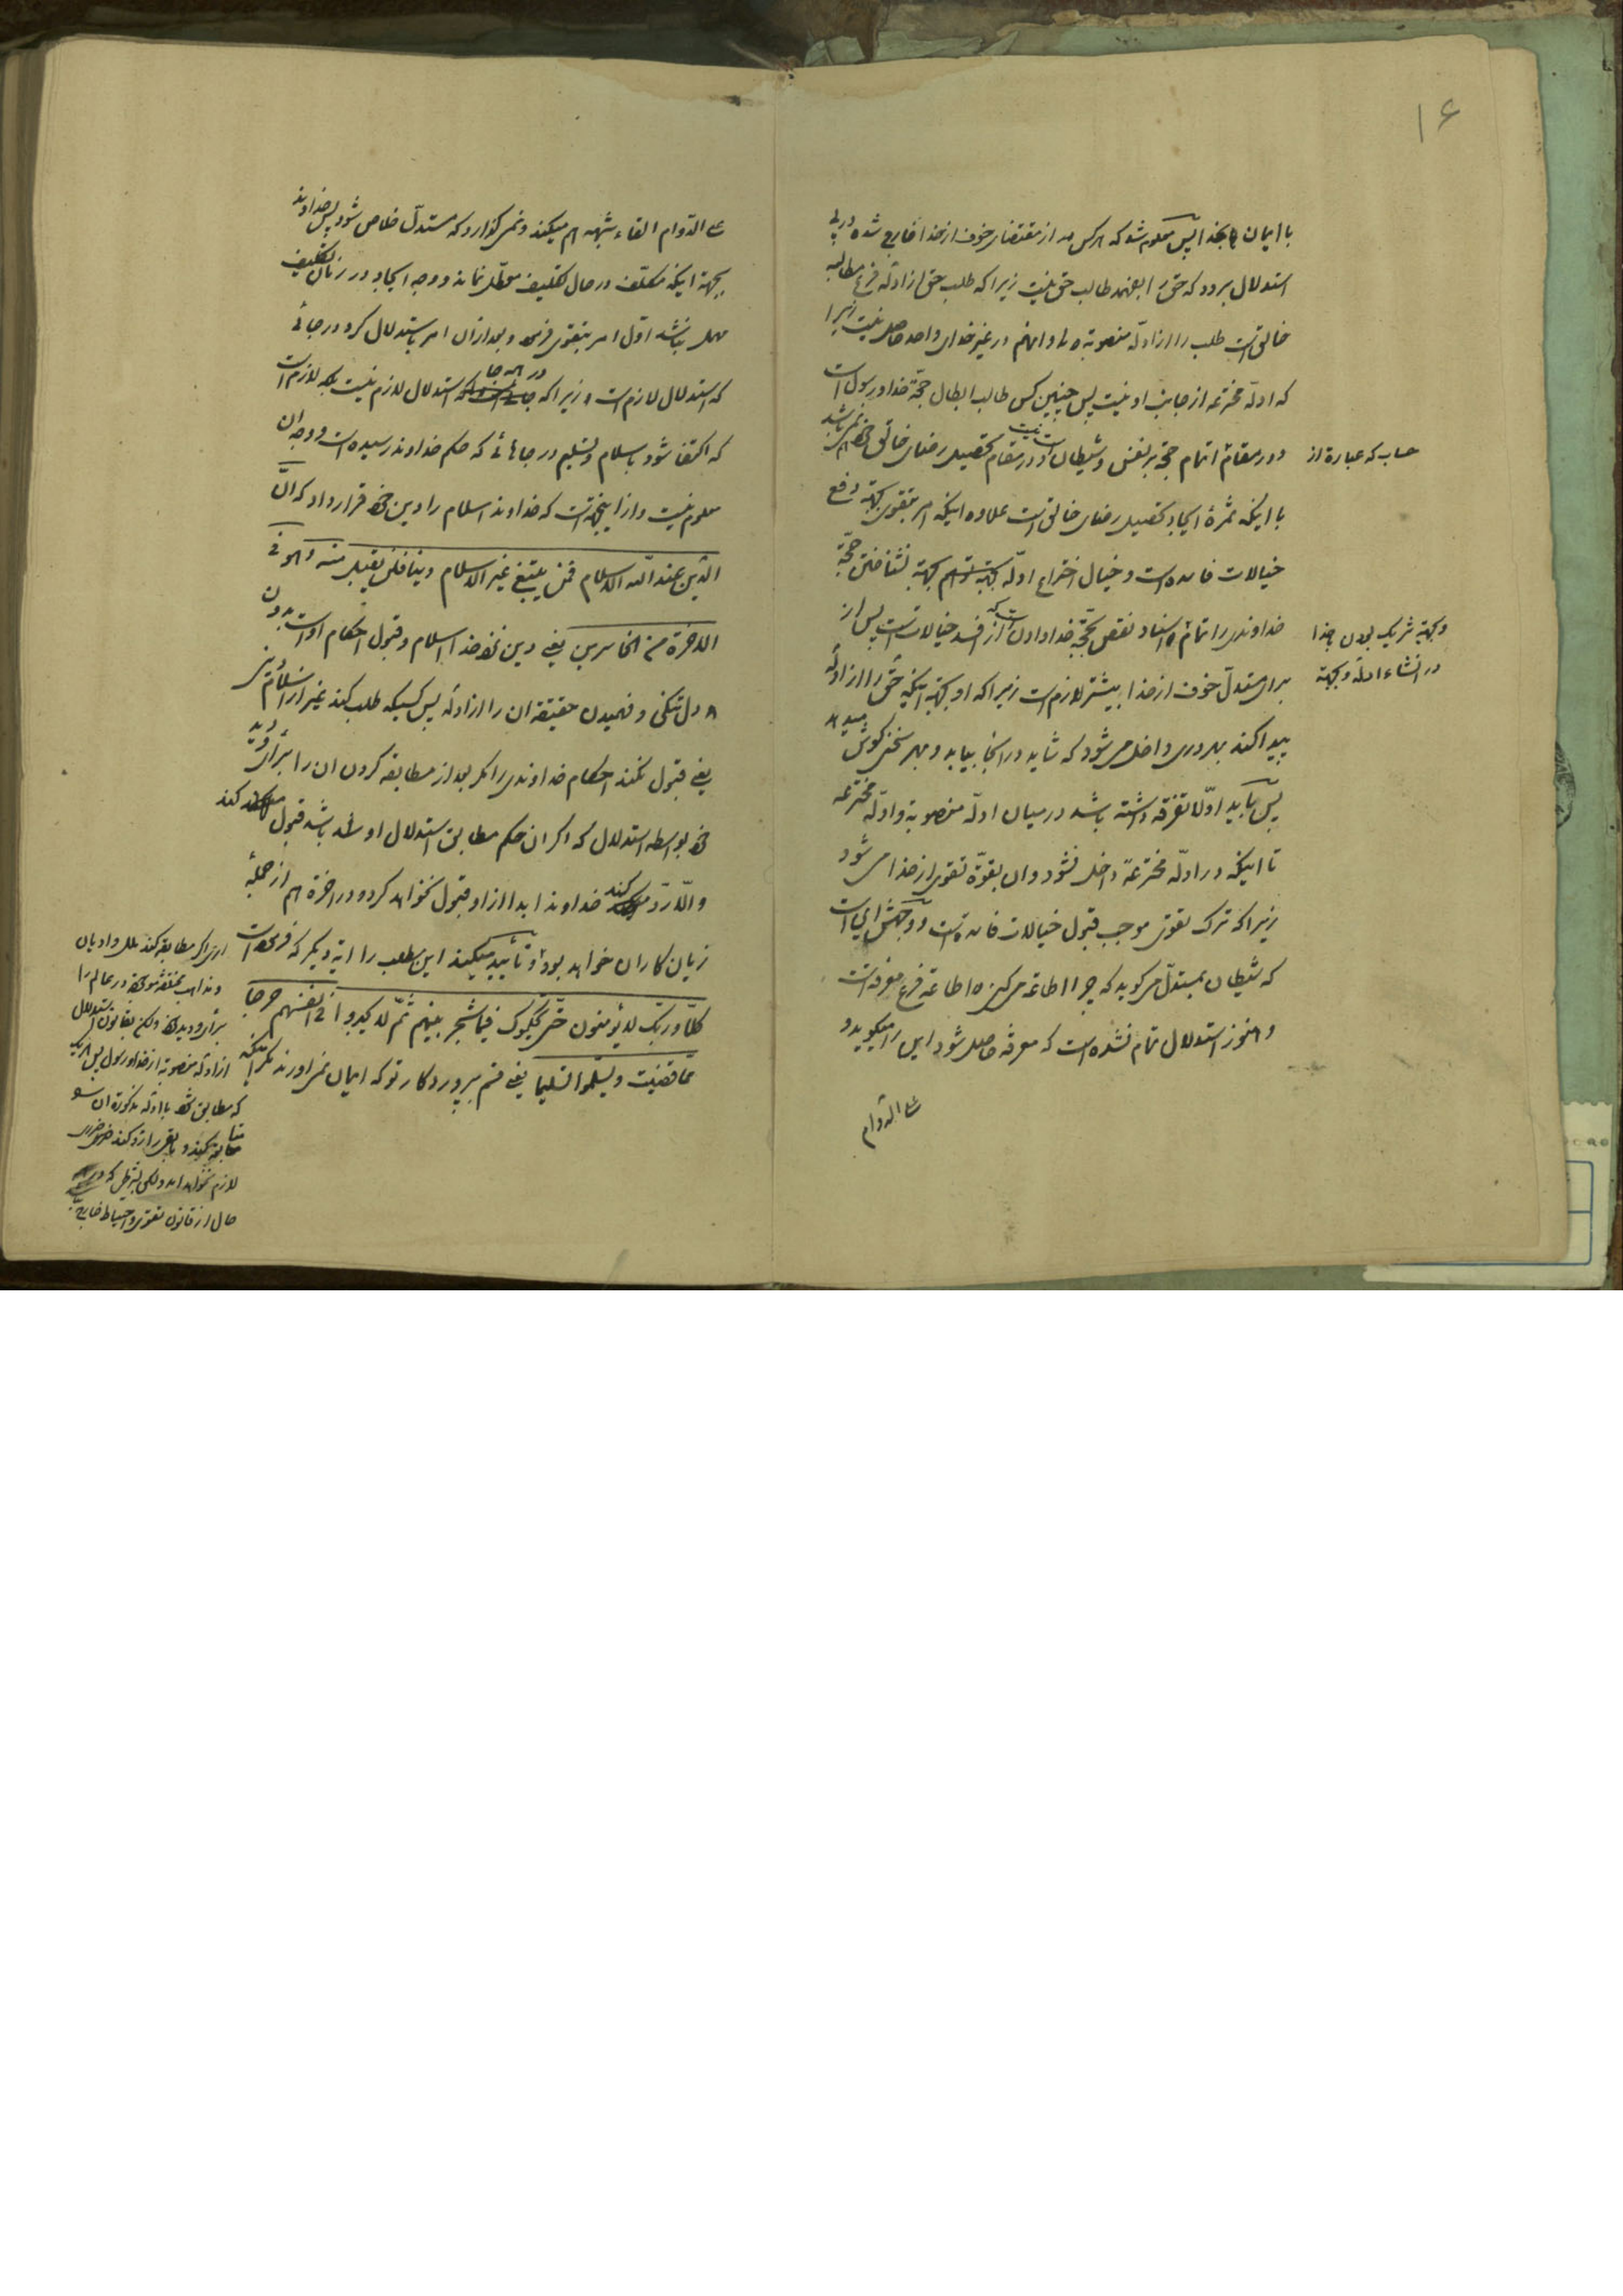 ۱۶
با ایمان بخدا پس معلوم شد که هرکس از مقتضای خوف از خدا خارج شده در پی
استدلال برود که حق را بفهمد طالب حق نیست زیرا که طلب حق از ادلّه فرع مطالبه
خالق است طلب را از ادلّه منصوبه و انهم در غیر خدای واحد حاصل نیست زیرا
که ادلّه مخترعه از جانب او نیست پس چنین کس طالب ابطال حجّة خدا و رسول است
و در مقام اتمام حجّة بر نفس و شیطان است و در مقام تحصیل رضای خالق خود نمی باشد
نیست
حساب که عبارة از
با اینکه ثمرهٔ ایجاد تحصیل رضای خالق است علاوه اینکه امر بتقوی بجهة دفع
خیالات فاسده است و خیال اختراع ادلّه بجهة نشناختن حجّة
خداوندی را تمام و اسناد نقص بحجّة خدا دادن است که از افسد خیالات است پس از
و بجهة شریک بودن بخدا
در انشاء ادلّه و بجهة
برای مستدلّ خوف از خدا بیشتر لازم است زیرا که او بجهة اینکه حق را از ادلّه
پیدا کند بهر دری داخل می شود که شاید در انجا بیابد و بهر سخنی گوش میدهد
پس باید اوّلا تفرقه داشته باشد در میان ادلّه منصوبه و ادلّه مخترعه
تا اینکه در ادلّه مخترعه داخل نشود و ان بقوّة تقوی از خدا می شود
زیرا که ترک تقوی موجب قبول خیالات فاسده است و وجهش این است
که شیطان بمستدلّ می گوید که چرا اطاعة می کنی اطاعة فرع معرفة است
و هنوز استدلال تمام نشده است که معرفة حاصل شود این را میگوید و
علی الدّوام
علی الدّوام القاء شبهه هم میکند و نمی گذارد که مستدلّ خلاص شود پس خداوند
بجهة اینکه مکلّف در حال تکلیف معطّل نماند و وجه ایجاد در زمان تکلیف
مهمل نباشد اوّل امر بتقوی فرمود و بعد از ان امر باستدلال کرد در جائی
که استدلال لازم است زیرا که در همه جا استدلال لازم نیست بلکه لازم است
که اکتفا شود باسلام و تسلیم در جاهائی که حکم خداوند رسیده است و وجه ان
معلوم نیست و از اینجهة است که خداوند اسلام را دین خود قرار داد که انّ
الدّین عند اللّه الاسلام فمن یبتغ غیر الاسلام دینا فلن یقبل منه و هو فی
الاخرة من الخاسرین یعنی دین نزد خدا اسلام و قبول احکام او است بدون
دل تنگی و فهمیدن حقیقة ان را از ادلّه پس کسیکه طلب کند غیر از اسلام دینی
یعنی قبول نکند احکام خداوندی را مگر بعد از مطابقه کردن ان را برأی و دید
خود بواسطه استدلال که اگر ان حکم مطابق استدلال او شد باشد قبول کند
والّا ردّ کند خداوند ابدا از او قبول نخواهد کرد و در اخرة هم از جملهٔ
زیان کاران خواهد بود و تأیید میکند این مطلب را ایه دیگر که فرموده است
کلّا و ربّک لا یؤمنون حتّی یحکّموک فیما شجر بینهم ثمّ لا یجدوا فی انفسهم حرجا
ممّا قضیت و یسلّموا تسلیما یعنی قسم بپروردکار تو که ایمان نمی اورند مگر اینکه
اری اگر مطابقه کند ملل و ادیان
و مذاهب مختلفه موجوده در عالم را
برأی و دید خود ولکن بقانون استدلال
از ادلّه منصوبه از خدا و رسول پس هر یک
که مطابق شود با ادلّه مذکوره ان
متابعة کند و باقی را ردّ کند ضرری
لازم نخواهد امد ولکن بشرطی که در
حال از قانون تقوی و احتیاط خارج